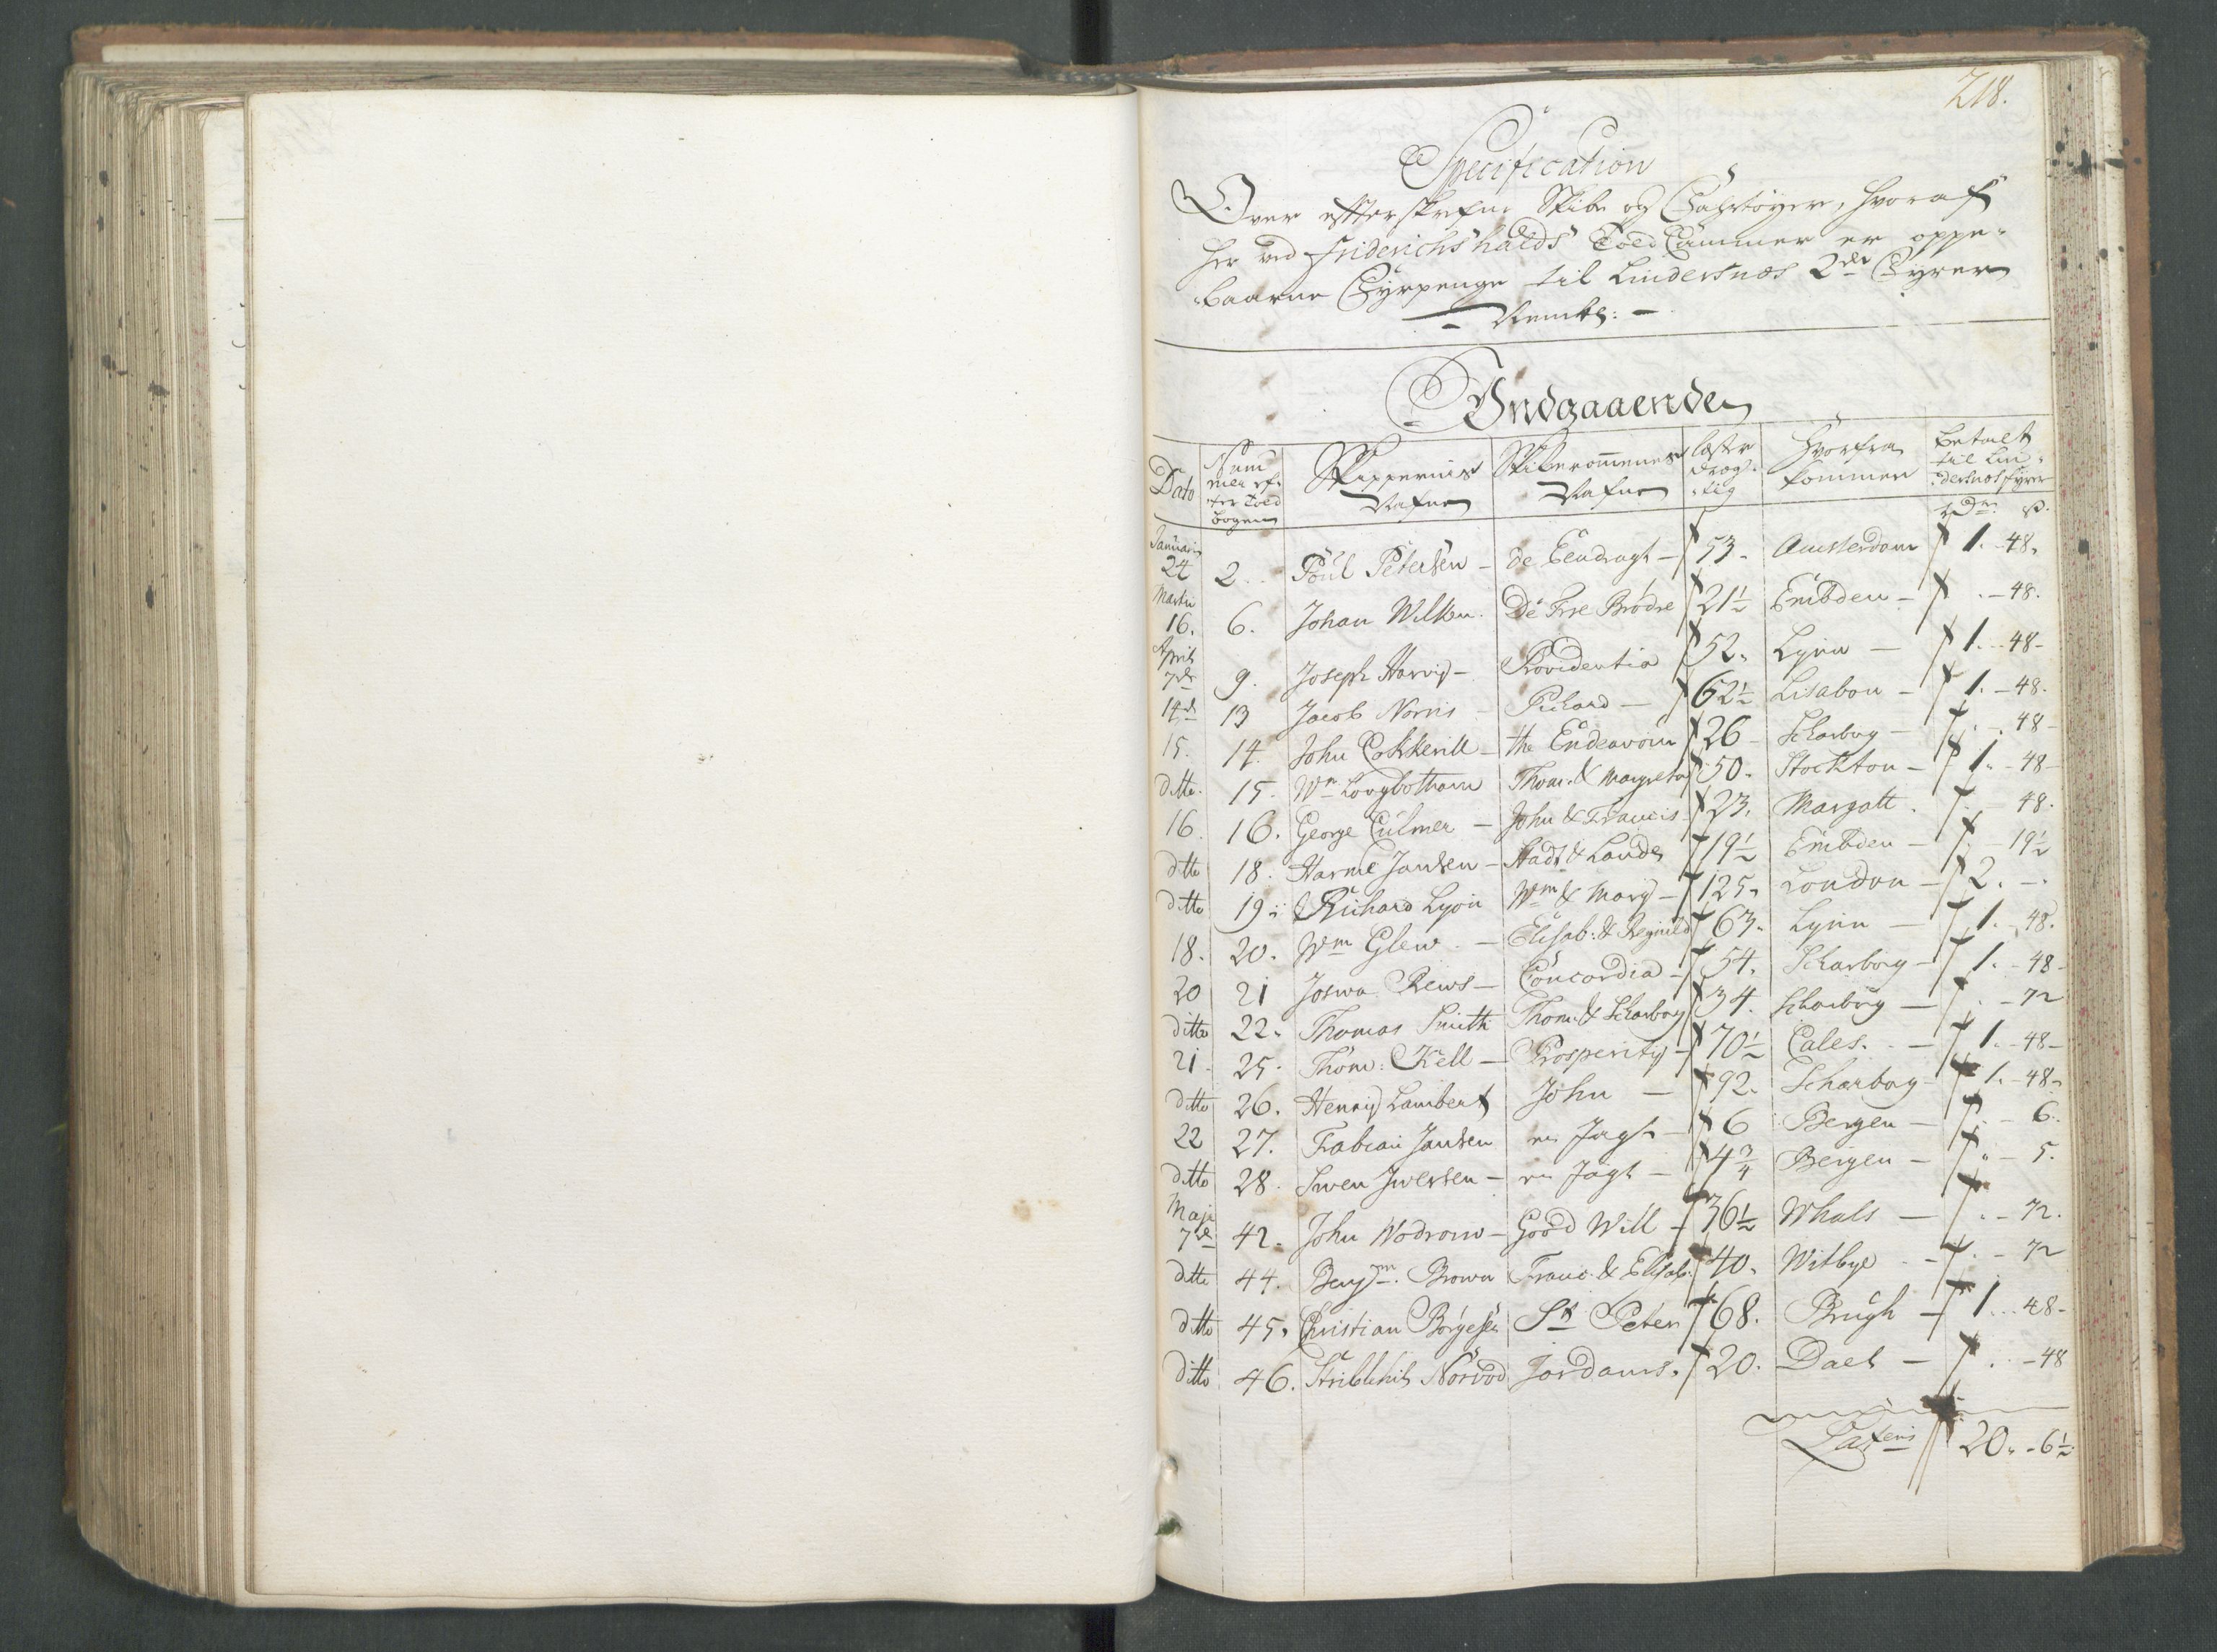 218.
Specification
Over efterskrefne Skibe og Fahrtøyer, hvoraf
her ved Friderichshalds Told Cammer er oppe-
baarne Fyrpenge til Lindersnæs 2de Fyrer
Nembl:
Indgaaende
Dato | Num mer ef- ter Told bogen | Skippernis Nafne | Skiberommenes Nafne | læste dræg- tig | Hvorfra kommen | betalt til Lin- dersnæs fyrer
rdr. s.
Januari
24 2. Poul Petersen - de Eendragt - 53. Amsterdam 1. 48.
Martii
16. 6. Johan Wilken. De Tree Brødre 21½ Embden - . - 48.
April
7de 9. Joseph Harvij - Providentia 52. Lynn - 1. 48 -
14de 13 Jacob Norris - Pichard - 62½ Lisabon - 1. - 48.
15. 14. John Cokkerill - the Endeavour 26 - Scharborg - . 48 -
ditto. 15. Wm Longbotham Thom: & Margreta 50. Stockton - 1. - 48 -
16. 16. George Culmer - John & Francis 23. Margatt . - 48.
ditto 18. Harme Jansen - Stadt & Landes 19½ Embden - - 19½
ditto 19. Richard Lyon Wm & Mary - 125. London - 2. - .
18. 20. Wm Glew. - Elisab: & Regnild 63. Lynn - 1. 48.
20 21 Joswa Rews - Concordia - 54. Scharborg - 1. - 48 -
ditto 22. Thomas Smith Thom: & Scharborg 34. Scharborg - . - 72
21. 25. Thom: Kell - Prosperity - 70½ Cales. - 1. - 48 -
ditto 26. Henrij Lambert John - 92. Scharborg - 1. - 48 -
22 27. Fabian Jansen en Jagt - 6 Bergen - . - 6.
ditto 28. Swen Iwersen - en Jagt - 4¾ Bergen - - 5.
Maji
7de 42. John Wodrow - Good Will - 36½ Whals - . - 72.
ditto 44. Benjm. Brown Franc: & Elisab: 40. Witbye . - . - 72
ditto 45. Christian Børgesen St Peter 68. Brugh - 1. .. 48 -
ditto 46. Norvod Jordans. 20. Dael - . - 48
Lateris 20. - 6½